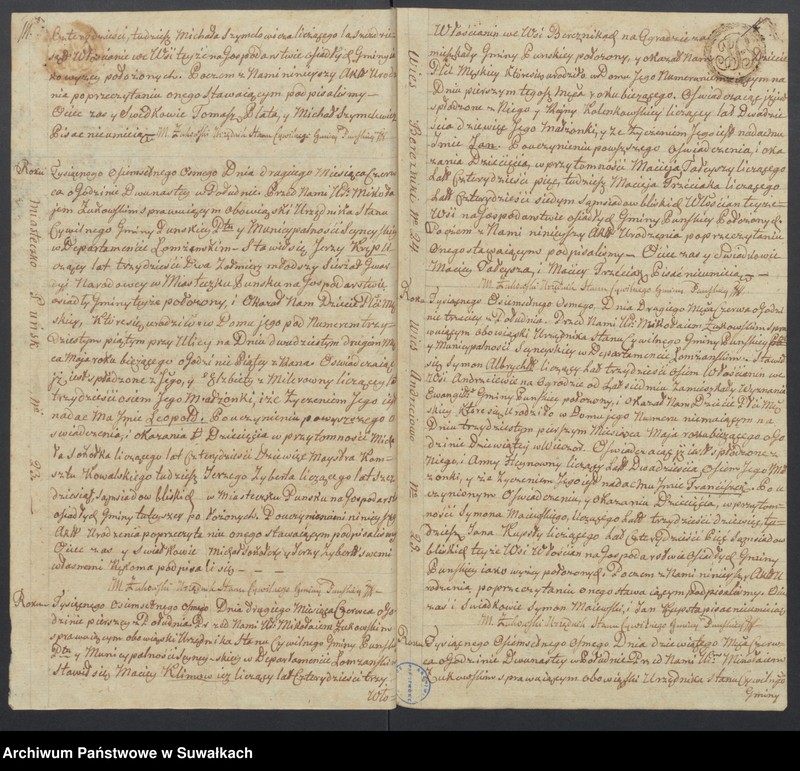 Czterydzieści, tudzież Michała Szymelowicza liczącego lat
Włościanie we Wsi teyże na Gospodarstwie osiadłych Gminy
wyżey położonych. Poczem z Nami ninieyszy Akt Urod
nia po przeczytaniu onego Stawaiącym podpisaliśmy
Ociec zas y Swiadkowie Tomasz Blata, y Michał Szymelowicz
Pisac nieumieią. M. Żukowski Urzędnik Stanu Cywilnego Gminy Puńskiey
Roku Tysiącznego Osmsetnego Osmego Dnia drugiego Miesiąca Czerw
ca o Godzinie Dwunastey w Południe. Przed Nami Mikoła
iem Żukowskim sprawuiącym obowiązki Urzędnika Stanu
Cywilnego Gminy Puńskiey Ptu y Municypalności Seyneyskiey
w Departamencie Łomżynskim Stawił się Jerzy
czący lat trzydzieści Dwa Żołnierz
Narodowey w Miasteczku Puńsku na Gospodarstwie
osiadły Gminy teyże położonym, i okazał Nam Dziecię Płci Mę
skiey, które się urodziło w Domu jego pod Numerem trzy
dziestym piątym przy Ulicy na Dniu dwudziestym drugim Mie
ca Maja roku bieżącego o Godzinie Piątey z Rana. Oswiadczaiąc
iż iest spłodzone z Jego, y Elzbiety z Milerowny liczącey lat
trzydzieści osiem Jego Małżonki, i że życzeniem Jego iest
nadac ma Jmie Leopold. Po uczynieniu powyższego o
swiadczenia, i okazania Dziecięcia w przytomności Micha
ła Sokołka liczącego lat Czterydzieści Dziewięć Maystra Kun
sztu Kowalskiego tudzież Jerzego Zyberta liczącego lat Sze
dziesiąt Sąmsiadow bliskich w Miasteczku Puńsku na Gospodarst
osiadłych Gminy tuteyszey położonych. Po uczynieniu ninieyszy
Akt Urodzenia poprzeczytaniu onego stawaiącym podpisaliśmy
Ociec zas y Swiadkowie Michał Sokołek y Jerzy Zybert swemi
własnemi Rękoma podpisali się
M. Żukowski Urzędnik Stanu Cywilnego Gminy Puńskiey
Roku Tysiącznego Osmsetnego Osmego Dnia drugiego Miesiąca Czerwca o Go
dzinie pierwszey z Południa Przed Nami Mikołaiem Żukowskim
sprawuiącym obowiązki Urzędnika Stanu Cywilnego Gminy Puńskiey
Ptu y Municypalności Seyneyskiey w Departamencie Łomżynskim
Stawił się Maciey Klimowicz liczący lat Czterydzieści trzy
Wło-
Miasteczko Puńsk No 23
Włościanin we Wsi Bereznikach na Ogrodzie za
mieszkały Gminy Puńskiey położoney, y okazał Nam Dziecię
Płci Męskiey które się urodziło w Domu Jego Numeru niemaiącym na
Dniu pierwszym tegoż Mca roku bieżącego. Oswiadczaiąc iż iest
spłodzone z Niego y Rejny Kalenkowskiey liczącey lat Dwadzie
scia dziewięć Jego Małżonki, y ze życzeniem Jego iest nadac mu
Jmie Jan. Po uczynieniu powyższego Oswiadczenia, i oka
zania Dziecięcia, w przytomności Macieja Tałcysza liczącego
lat Czterydzieści pięć, tudzież Macieja Grzeciaka liczącego
lat Czterydzieści siedym Sąmsiadow bliskich Włościan teyże
Wsi na Gospodarstwie osiadłych Gminy Puńskiey Położonych.
Poczem z Nami ninieyszy Akt Urodzenia po przeczytaniu
Onego stawaiącym podpisaliśmy. Ociec zas y Swiadkowie
Maciey Tałcysza, i Maciey Grzeciak Pisac nieumieią
M. Żukowski Urzędnik Stanu Cywilnego Gminy Puńskiey
Wies Berezniki No 24
Roku Tysiącznego Osmsetnego Osmego, Dnia Drugiego Mca Czerwca o Godzi
nie trzeciey z Południa. Przed Nami Mikołaiem Żukowskim spra
wuiącym obowiązki Urzędnika Stanu Cywilnego Gminy Puńskiey Ptu
y Municypalności Seyneyskiey w Departamencie Łomżynskim Stawił
się Symon Albrycht liczący Lat trzydzieści osiem Włościanin we
Wsi Andrzeiewie na Ogrodzie od Lat siedmiu Zamieszkały Wyznania
Ewangielii Gminy Puńskiey położoney, i okazał Nam Dziecię Płci Mę
skiey które się Urodziło w Domu jego Numeru niemaiącym na
Dniu trzydziestym pierszym Miesiąca Maja roku bieżącego o Go
dzinie Dziewiątey w Wieczor. Oswiadczaiąc iż iest spłodzone z
Niego, i Anny Heynowny liczącey Lat Dwadzieścia Osiem Jego Mał
zonki, y za życzeniem Jego iest nadac mu Jmie Franciszek. Po u
czynionym Oswiadczeniu, y okazaniu Dziecięcia, w przytom
ności Symona Maiewskiego, liczącego Lat trzydzieści dziewięć tu
dzież Jana Kupsty liczącego Lat Czterydzieści Pięć Sąmsiadow
bliskich teyże Wsi Włościan na Gospodarstwie osiadłych Gminy
Puńskiey iako wyżey położonych. Poczem z Nami ninieyszy Akt U
rodzenia po przeczytaniu onego stawaiącym podpisaliśmy. Oci
zas i Swiadkowie Symon Maiewski, i Jan Kupsta pisac nieumieią
M. Żukowski Urzędnik Stanu Cywilnego Gminy Puńskiey
Roku Tysiącznego Osmsetnego Osmego Dnia dziewiątego Mca Czerw
ca o Godzinie Dwunastey w Południe Przed Nami Mikołaiem
Żukowskim sprawuiącym obowiązki Urzędnika Stanu Cywilnego
Gminy
Wies Andrzeiewo No 22
Archiwum Państwowe w Suwałkach